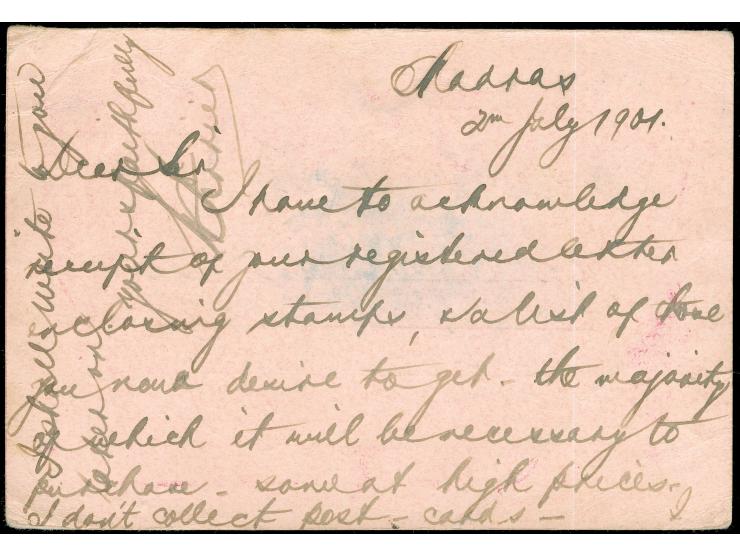 Madras
2nd July 1901.
Dear Sir
I have to acknowledge
receipt of your registered letter
enclosing stamps, & a list of those
you now desire to get - the majority
of which it will be necessary to
purchase - some at high prices -
I don't collect post-cards -
I shall write to you
later on
yours faithfully